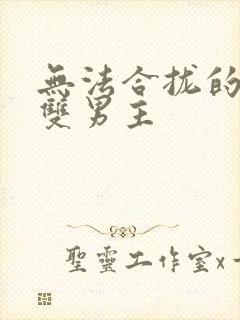 無法合拢的
雙男主
聖靈工作室x